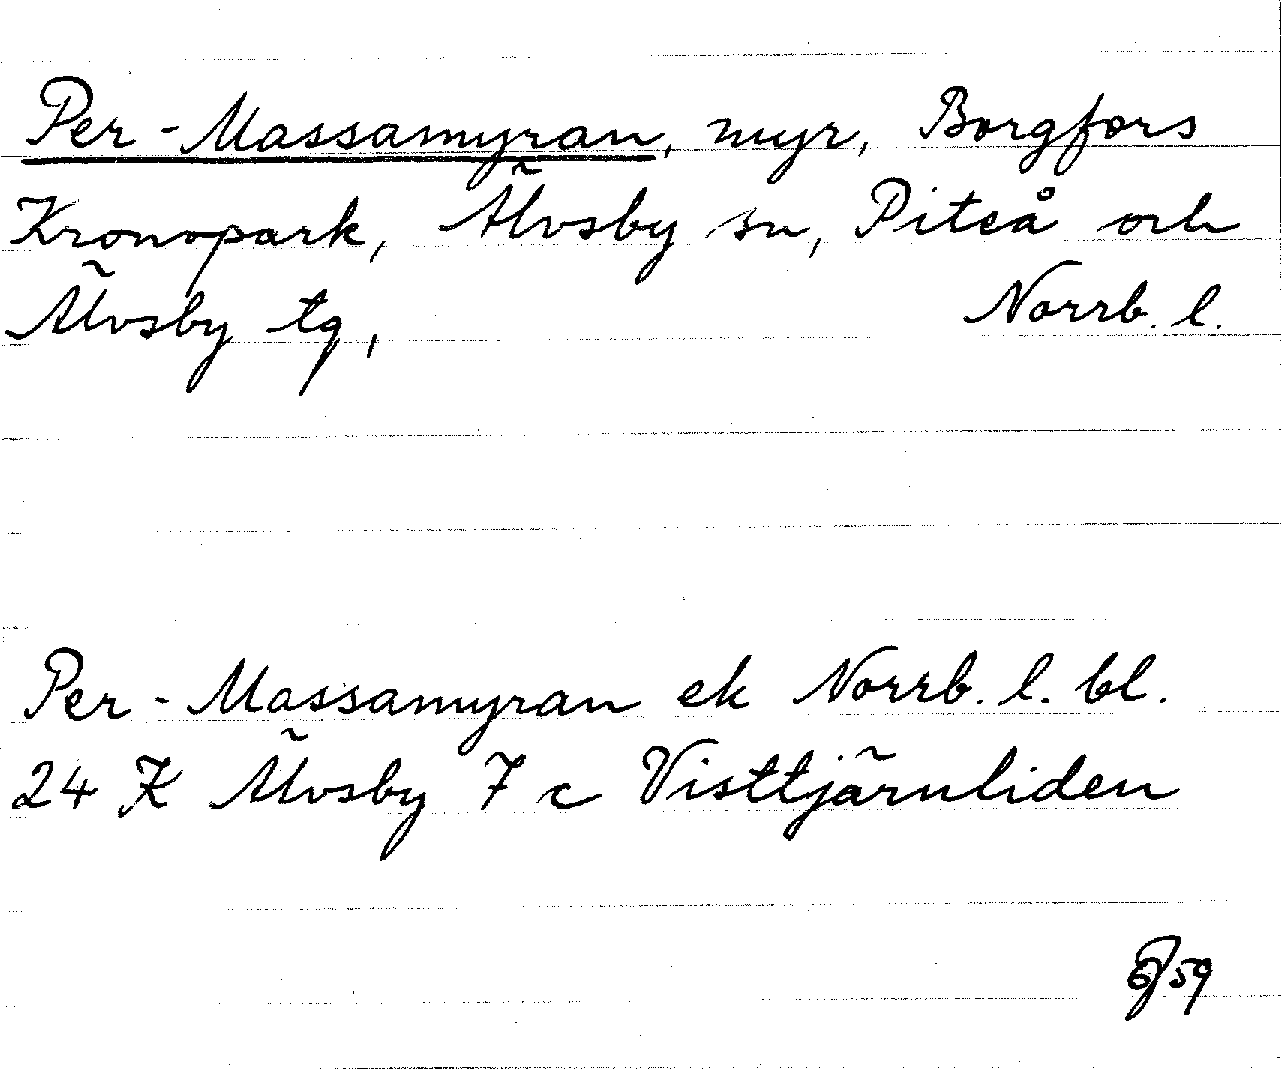 Per-Massamyran, myr, Borgfors
Kronopark, Älvsby sn, Piteå och
Älvsby tg, Norrb. l.
Per-Massamyran ek Norrb. l. bl.
24 K Älvsby 7 c Visttjärnliden
59